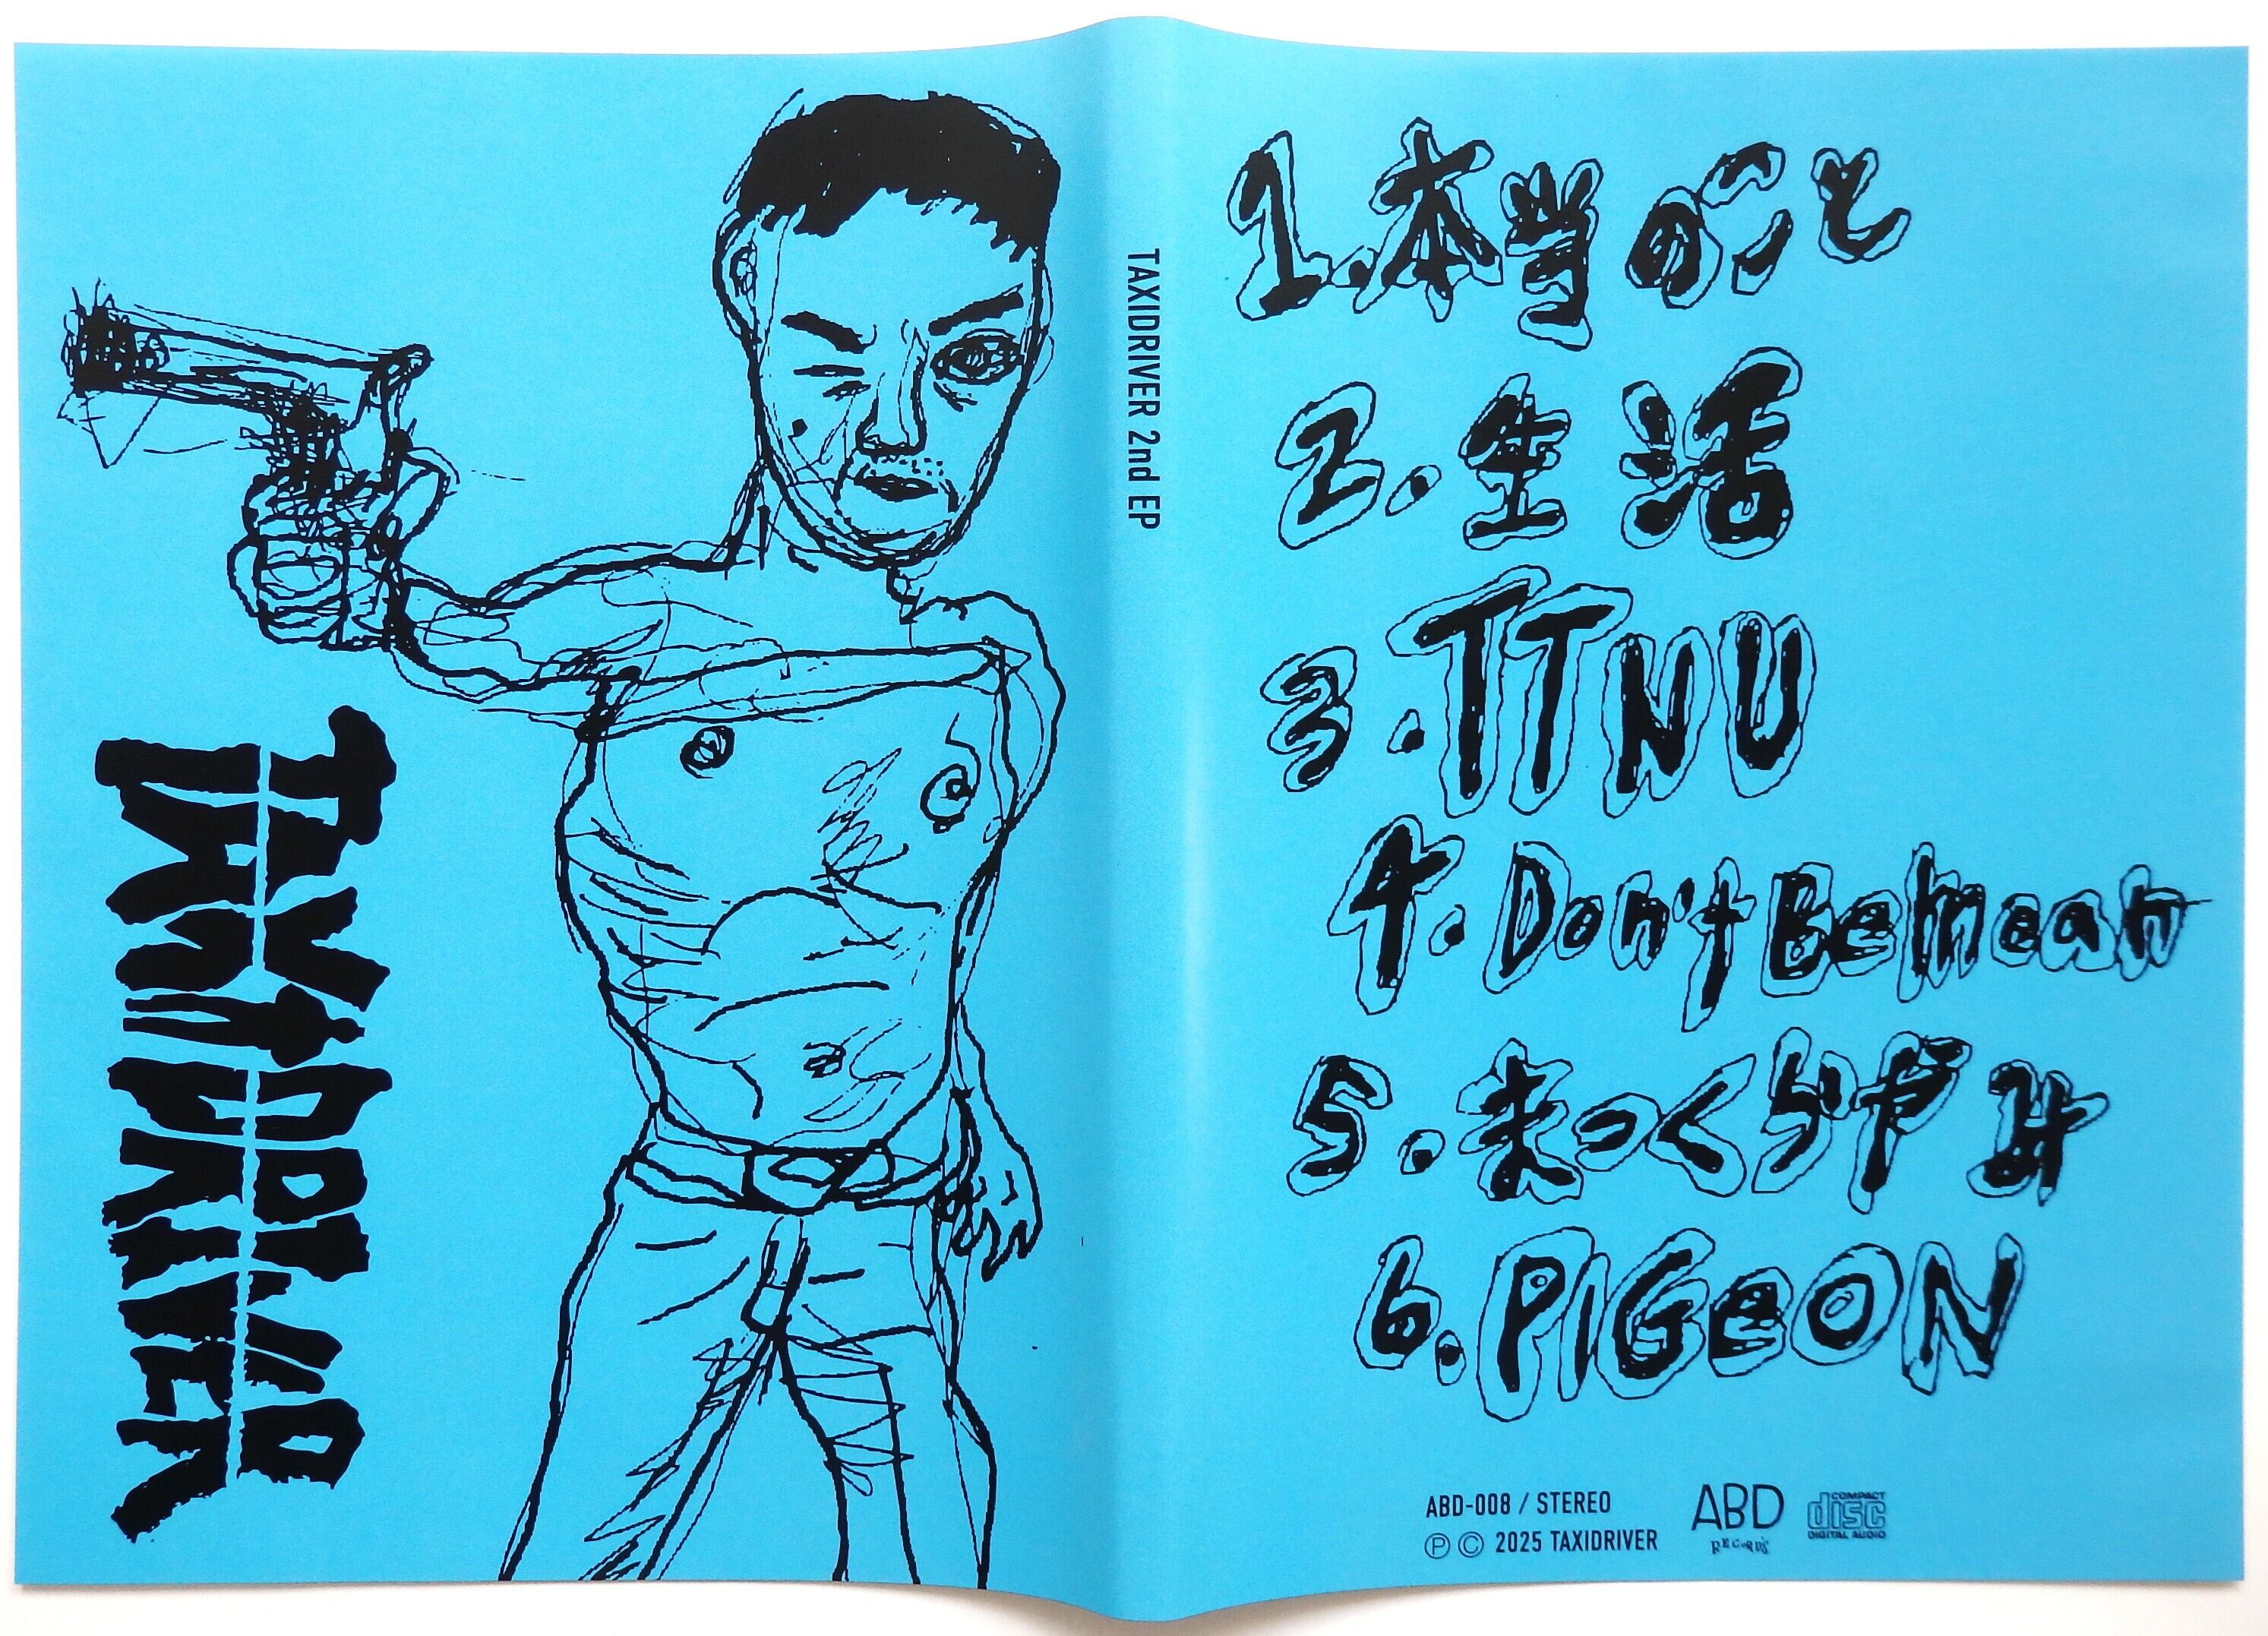 TAXIDRIVER
TAXIDRIVER 2nd EP
1.本当のこと
2.生活
3.TTNU
4.Don't Be mean
5.まっくらやみ
6.PIGeON
ABD-008 / STEREO
Ⓟ Ⓒ 2025 TAXIDRIVER
ABD
RECORDS
COMPACT
disc
DIGITAL AUDIO